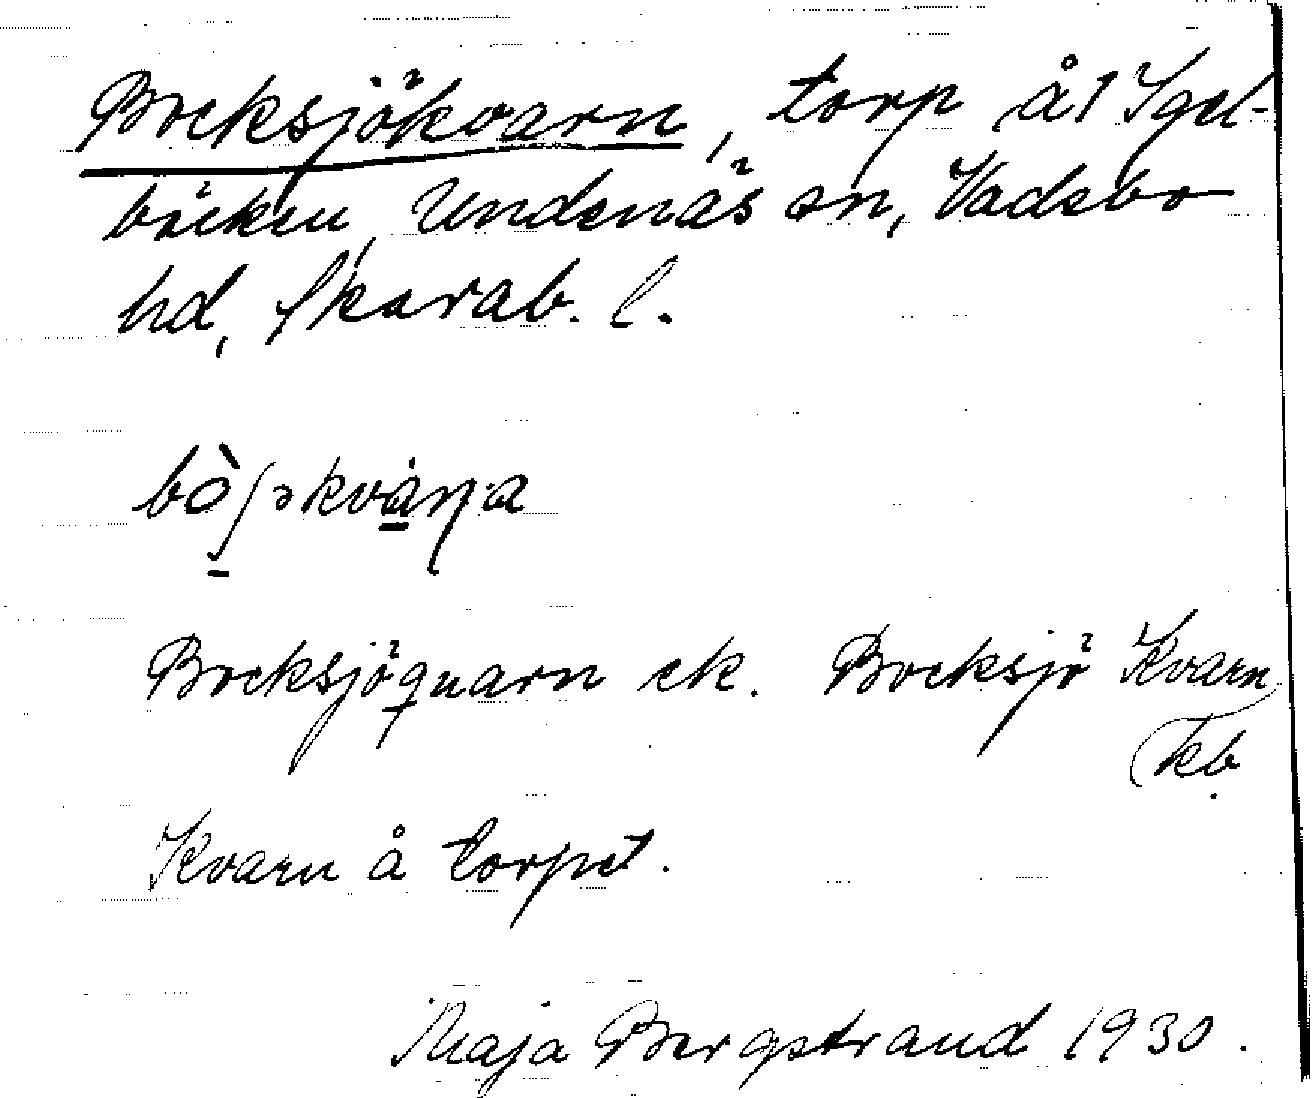 Bocksjökvarn, torp å 1 Igel-
bäcken, Undenäs sn, Vadsbo
hd, Skarab. l.
Bocksjöquarn ek. Bocksjö Kvarn
(kb.
Kvarn å torpet.
Maja Bergstrand 1930.